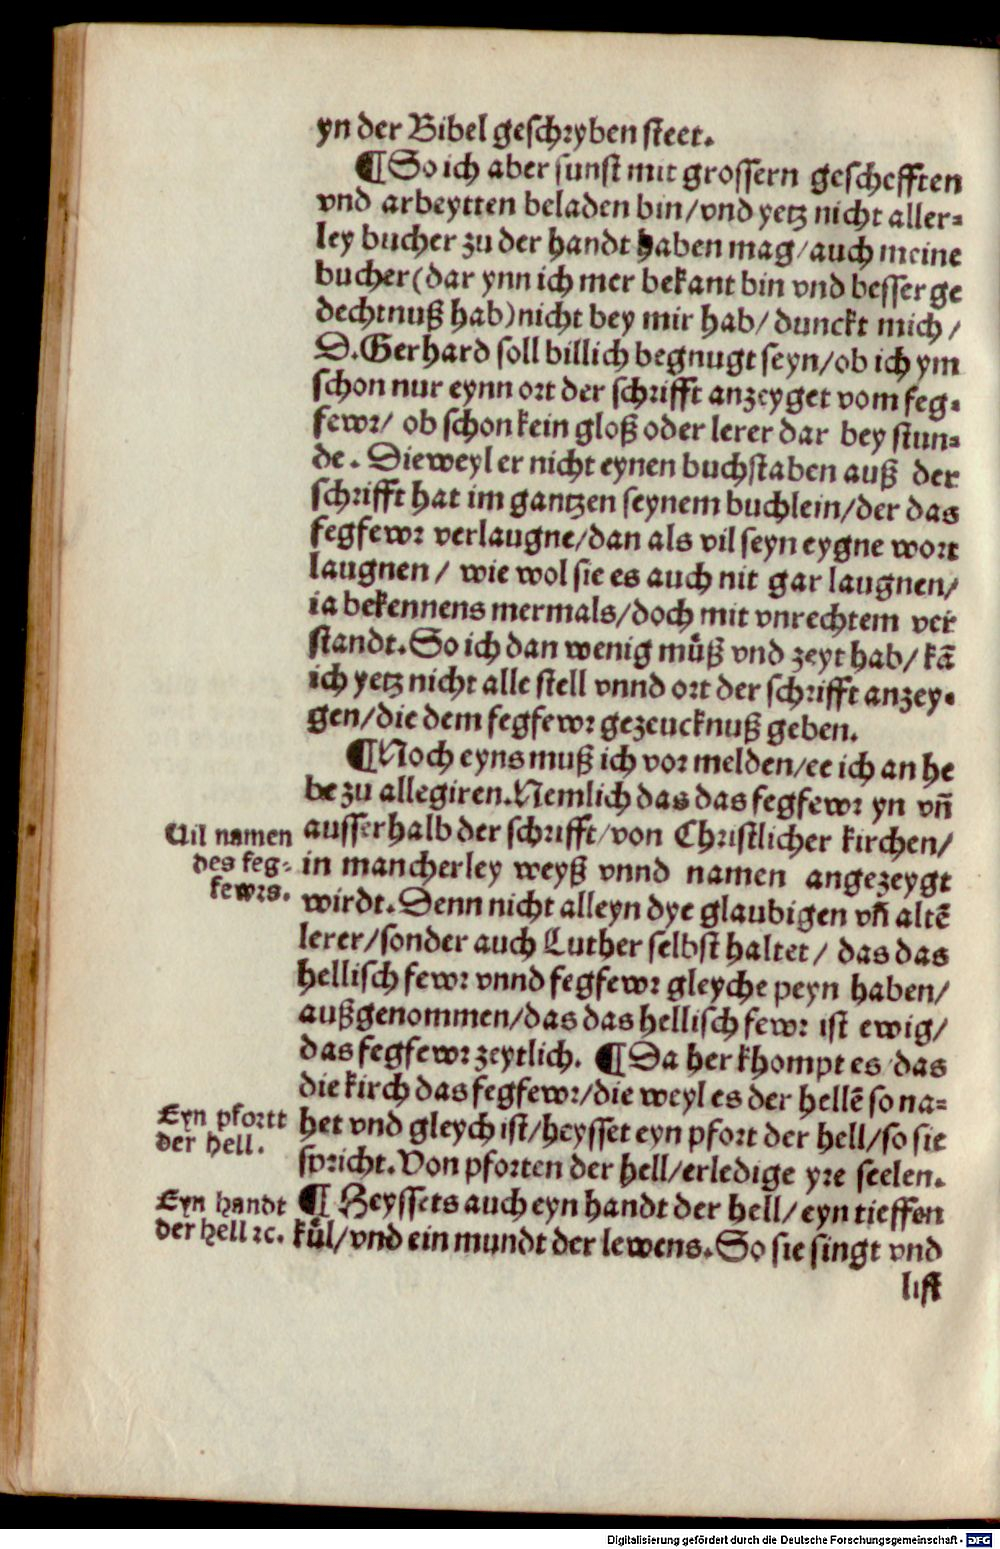 yn der Bibel geschryben steet.
¶So ich aber sunst mit grossern geschefften
vnd arbeytten beladen bin/vnd yetz nicht aller⸗
ley bucher zu der handt haben mag/auch meine
bucher(dar ynn ich mer bekant bin vnd besser ge
dechtnuß hab)nicht bey mir hab/ dunckt mich /
D.Gerhard soll billich begnugt seyn/ob ich ym
schon nur eynn ort der schrifft anzeyget vom feg⸗
fewr/ ob schon kein gloß oder lerer dar bey stun⸗
de. Dieweyl er nicht eynen buchstaben auß der
schrifft hat im gantzen seynem buchlein/der das
fegfewr verlaugne/dan als vil seyn eygne wort
laugnen / wie wol sie es auch nit gar laugnen/
ia bekennens mermals/doch mit vnrechtem ver
standt.So ich dan wenig můß vnd zeyt hab/ kā
ich yetz nicht alle stell vnnd ort der schrifft anzey⸗
gen/die dem fegfewr gezeucknuß geben.
¶Noch eyns muß ich vor melden/ee ich an he
be zu allegiren.Nemlich das das fegfewr yn vñ
Vil namen
des feg⸗
fewrs.
ausserhalb der schrifft/von Christlicher kirchen/
in mancherley weyß vnnd namen angezeygt
wirdt.Denn nicht alleyn dye glaubigen vñ altē
lerer/sonder auch Luther selbst haltet / das das
hellisch fewr vnnd fegfewr gleyche peyn haben/
außgenommen/das das hellisch fewr ist ewig/
das fegfewr zeytlich. ¶Da her khompt es/das
die kirch das fegfewr/die weyl es der hellē so na⸗
Eyn pfortt
der hell.
het vnd gleych ist/heysset eyn pfort der hell/so sie
spricht.Von pforten der hell/erledige yre seelen.
Eyn handt
der hell ꝛc.
¶ Heyssets auch eyn handt der hell/ eyn tieffen
kůl/vnd ein mundt der lewens.So sie singt vnd
list
Digitalisierung gefördert durch die Deutsche Forschungsgemeinschaft - DFG